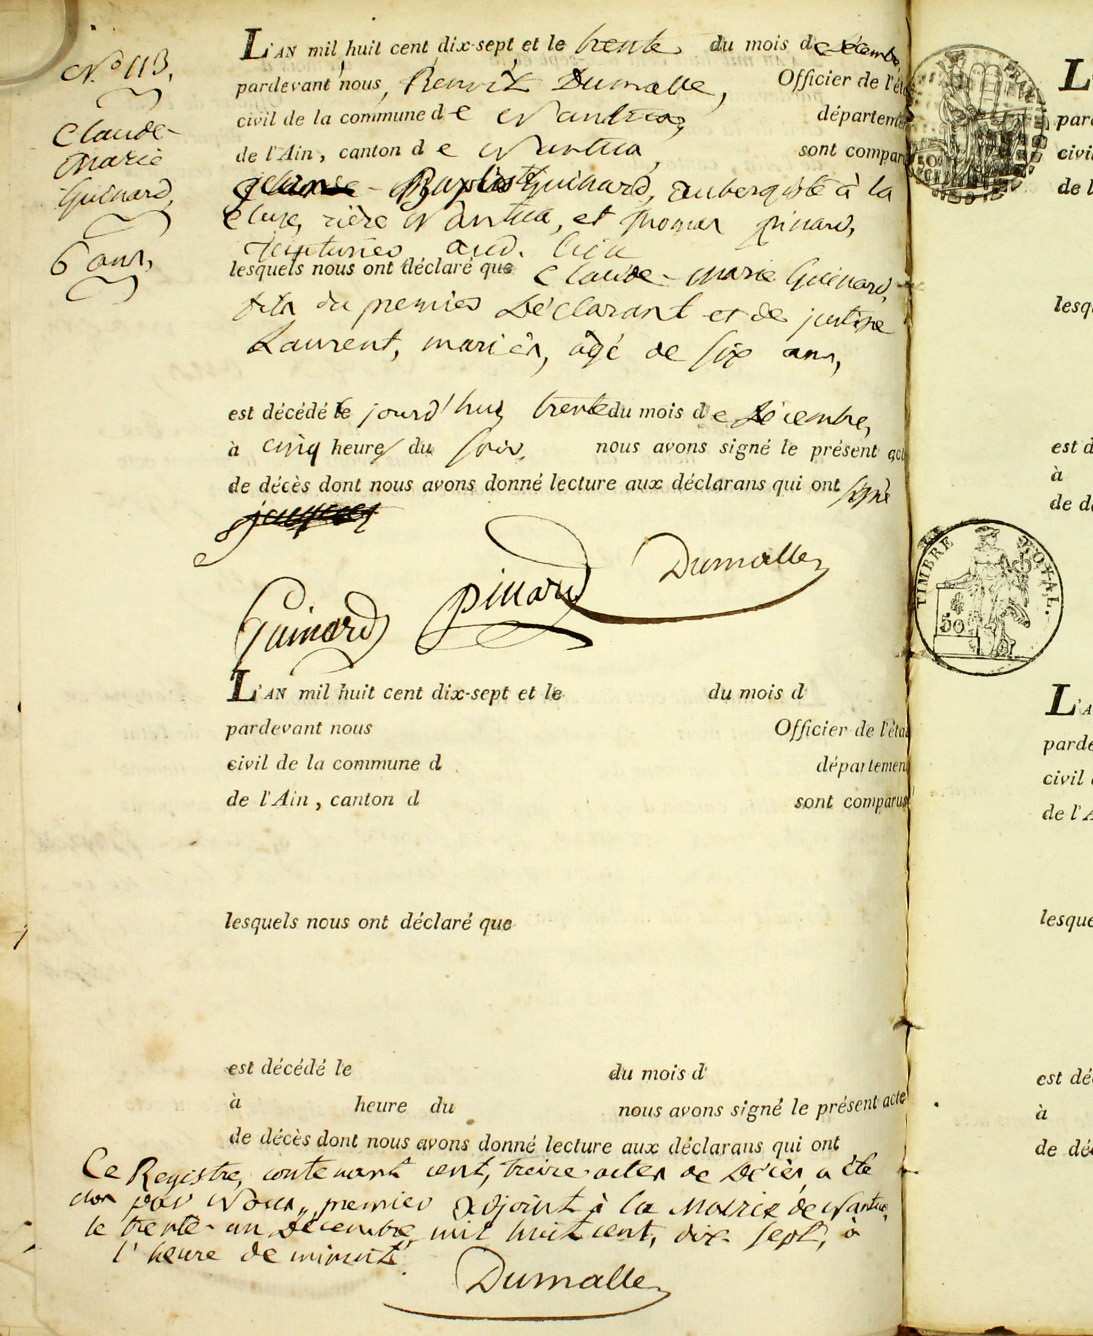 N.° 113.
Claude-
Marie
Guinard,
6 ans,
L'AN mil huit cent dix-sept et le trente du mois de décembre
pardevant nous, Benoît Dumalle, Officier de l'éta
civil de la commune de Nantua, départeme
de l'Ain, canton de Nantua, sont compar
Baptiste Guinard, aubergiste à la
cluse, rière Nantua, et Thomas pinard,
teinturier aud. lieu
lesquels nous ont déclaré que Claude-Marie Guinard,
fils du premier Déclarant et de justine
Laurent, mariés, âgé de six ans,
est décédé le jourd'hui trente du mois de Décembre,
à cinq heures du soir, nous avons signé le présent act
de décès dont nous avons donné lecture aux déclarans qui ont signé
Guinard pinard Dumalle
L'AN mil huit cent dix-sept et le du mois d
pardevant nous Officier de l'état
civil de la commune d département
de l'Ain, canton d sont comparus
lesquels nous ont déclaré que
est décédé le du mois d
à heure du nous avons signé le présent acte
de décès dont nous avons donné lecture aux déclarans qui ont
Ce Registre, contenant cent, treize actes de Décès a été
clos par Nous, premier adjoint à la Mairie de Nantua,
le trente-un Décembre mil huit cent, dix-sept, à
l'heure de minuit.
Dumalle
50
TIMBRE ROYAL.
50
L
par
civi
de l
lesq
est d
à
de d
L'A
parde
civil
de l'A
lesque
est dé
à
de dé